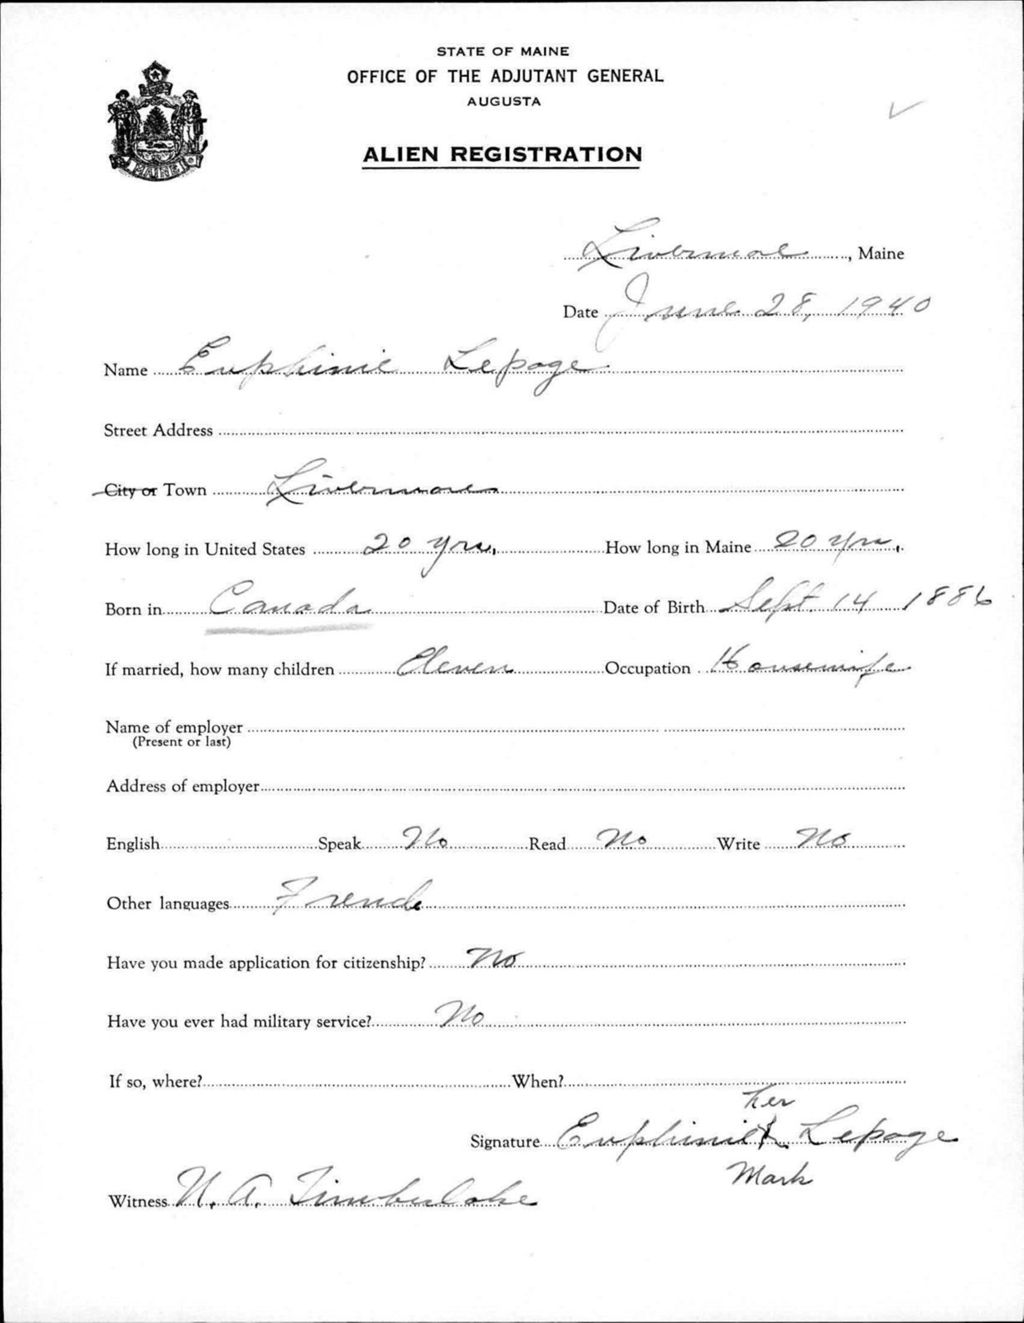 STATE OF MAINE
OFFICE OF THE ADJUTANT GENERAL
AUGUSTA
ALIEN REGISTRATION
MAINE
Livermore, Maine
Date June 28, 1940
Name Euphinie Lepage
Street Address
City or Town Livermore
How long in United States 20 yrs, How long in Maine 20 yrs,
Born in Canada Date of Birth Sept 14 1886
If married, how many children Eleven Occupation Housewife
Name of employer
(Present or last)
Address of employer
English Speak No Read No Write No
Other languages French
Have you made application for citizenship? No
Have you ever had military service? No
If so, where? When?
her
Signature Euphinie X Lepage
Mark
Witness N. A. Timberlake